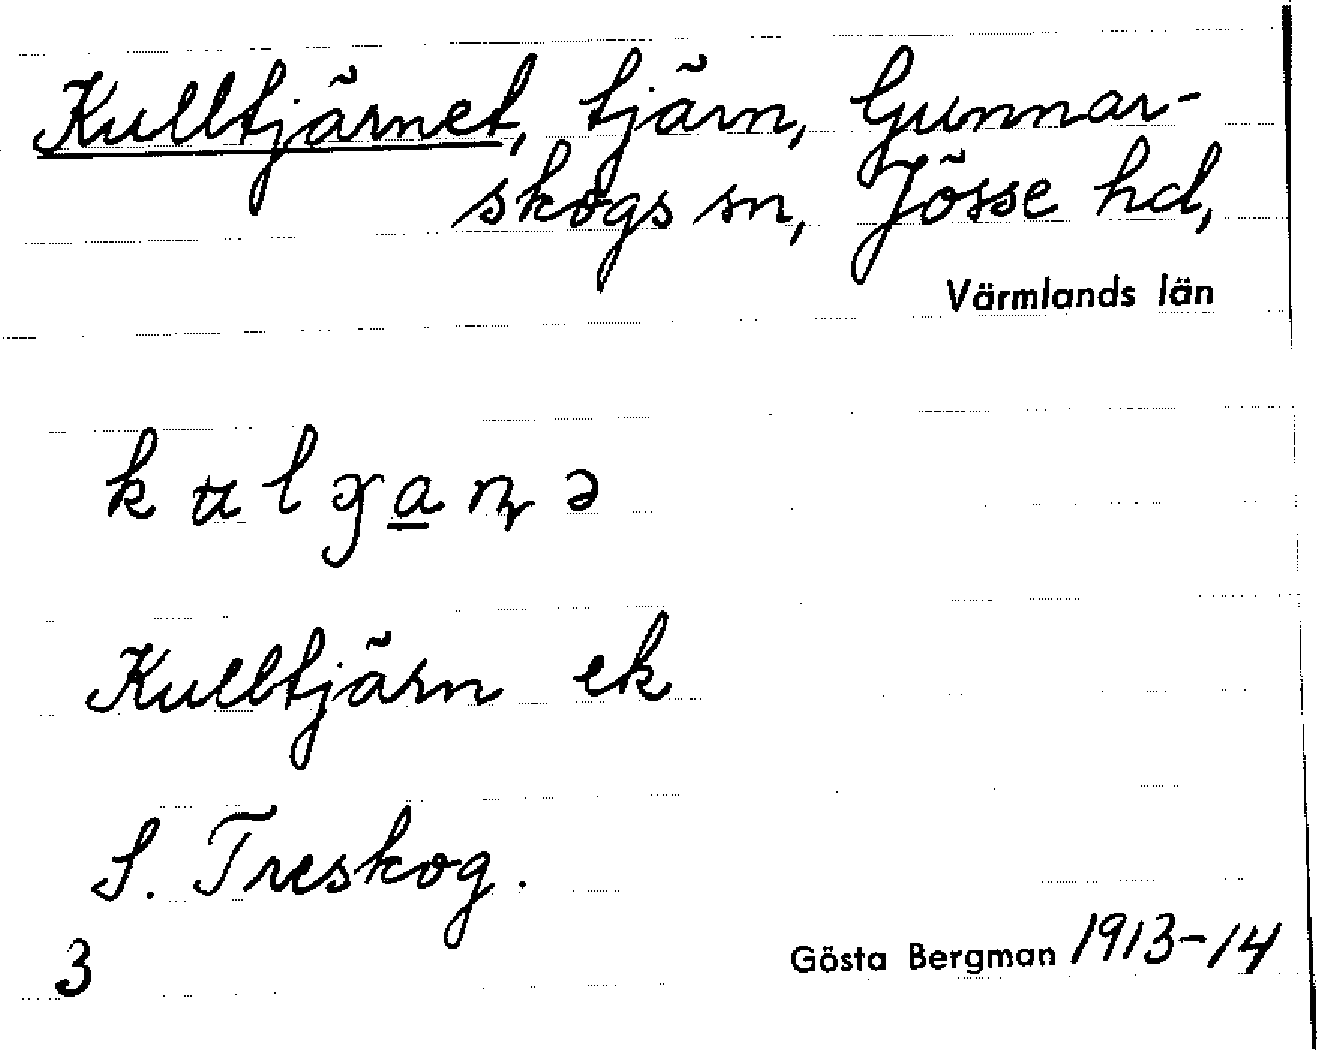 Kulltjärnet, tjärn, Gunnar-
skogs sn, Jösse hd,
Värmlands län
Kulltjärn ek
S. Treskog.
3
Gösta Bergman 1913-14